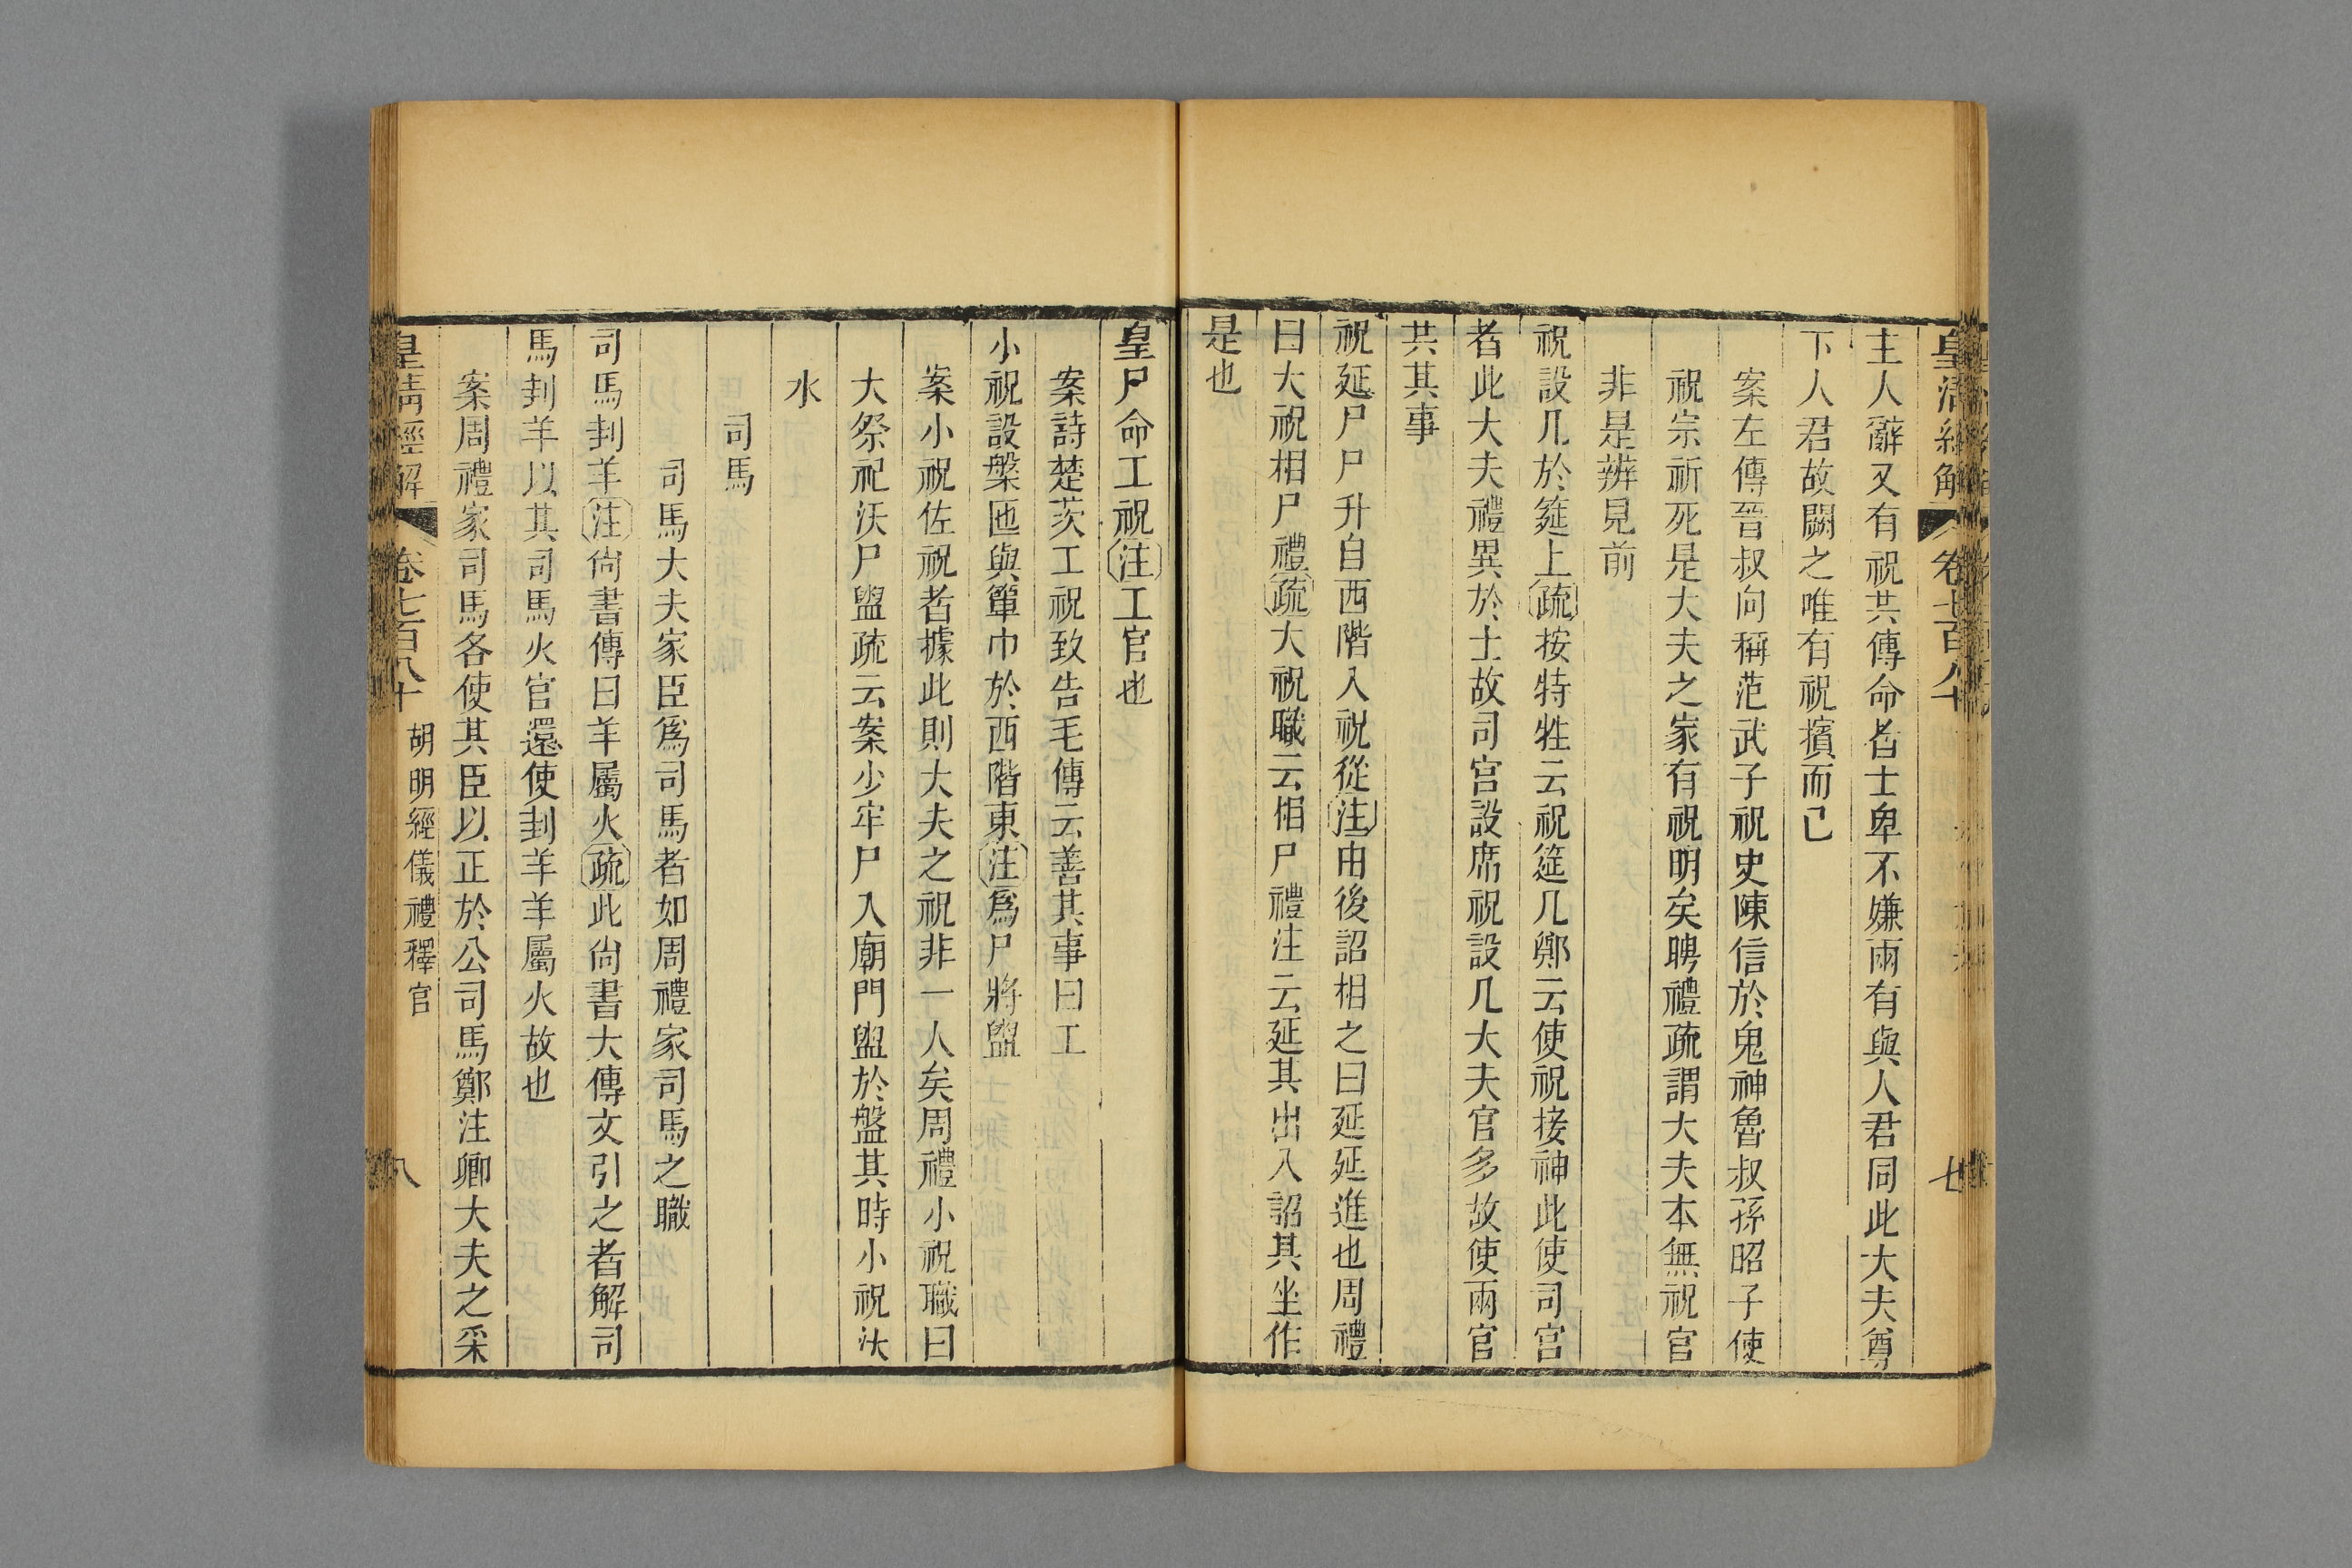 皇清經解
卷七百八十
七
主人辭又有祝共傳命者士卑不嫌兩有與人君同此大夫尊
下人君故闕之唯有祝擯而已
案左傳晉叔向稱范武子祝史陳信於鬼神魯叔孫昭子使
祝宗祈死是大夫之家有祝明矣聘禮疏謂大夫本無祝官
非是辨見前
祝設几於筵上疏按特牲云祝筵几鄭云使祝接神此使司宮
者此大夫禮異於士故司宮設席祝設几大夫官多故使兩官
共其事
祝延尸尸升自西階入祝從注由後詔相之曰延延進也周禮
曰大祝相尸禮疏大祝職云相尸禮注云延其出入詔其坐作
是也
皇尸命工祝注工官也
案詩楚茨工祝致告毛傳云善其事曰工
小祝設槃匜與簞巾於西階東注爲尸將盥
案小祝佐祝者據此則大夫之祝非一人矣周禮小祝職曰
大祭祀沃尸盥疏云案少牢尸入廟門盥於盤其時小祝沃
水
司馬
司馬大夫家臣爲司馬者如周禮家司馬之職
司馬刲羊注尙書傳曰羊屬火疏此尙書大傳文引之者解司
馬刲羊以其司馬火官還使刲羊羊屬火故也
案周禮家司馬各使其臣以正於公司馬鄭注卿大夫之采
皇清經解
卷七百八十
胡明經儀禮釋官
八